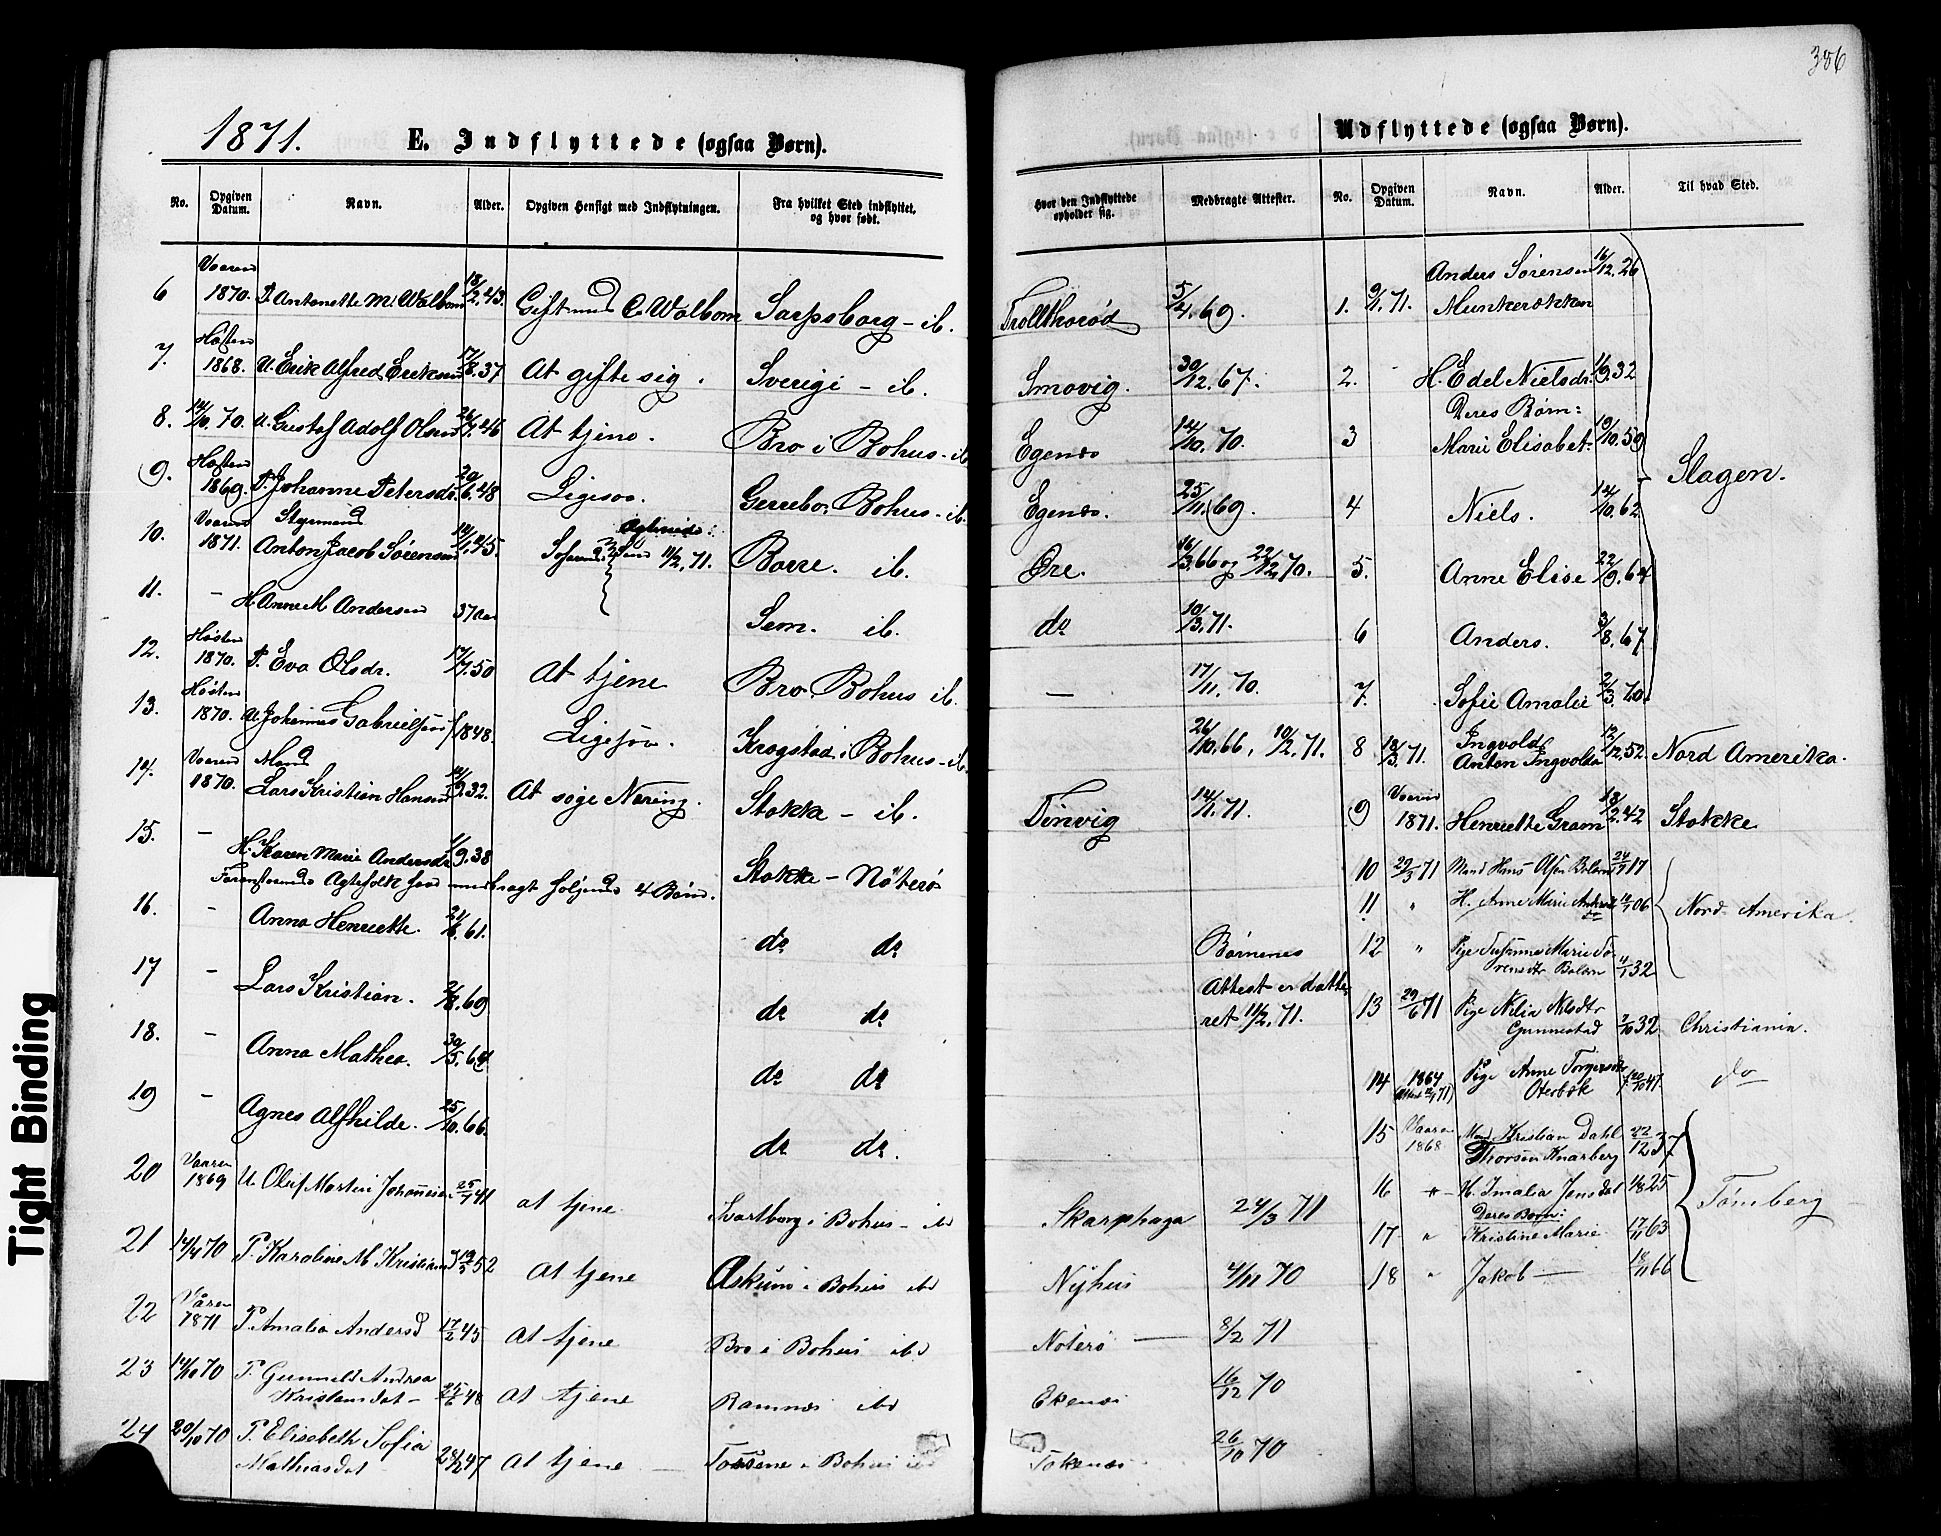 306
1871.
E. Indflyttede (ogsaa Børn).
No. Opgiven Datum. Navn. Alder. Opgiven Hensigt med Indflytningen. Fra hvilket Sted indflyttet, og hvor født.
Vaaren
6 1870. P. Antonette M. Walbom 18/2.43. Gift med C. Walbom Sarpsborg - ib.
Høsten
7. 1868. U. Erik Alfred Eriksen 17/8.37 At gifte sig. Sverige - ib.
8. 14/10.70. U. Gustaf Adolf Olsen 46 At tjene. Bro i Bohus - ib
Høsten
9. 1869. P. Johanne Petersdr. 20/6.48 Ligesaa. Bohus - ib.
Vaaren Styrmand
10. 1871. Anton Jacob Sørensen 45. 11/2.71. Borre. ib.
11. - H. Anne M Andersen 37 Aar Sem. ib.
Høsten
12. 1870. P. Eva Olsdr. 17/7.50 At tjene Bro. Bohus ib.
Høsten
13. 1870. U. Johannes Gabrielsen 1848. Ligesaa. Krogstad i Bohus - ib.
Vaaren Mand
14. 1870. Lars Kristian Hansen 32. At søge Næring. Stokke - ib.
15. - H. Karen Marie Andersdr. 1/9.38 Stokke - Nøterø
Foranstaaende Agtefolk have medbragt følgende 4 Børn.
16. - Anna Henriette. 61. do do
17 - Lars Kristian. 2/8.69 do do
18. - Anna Mathea. 30/5.64 do do
19 - Agnes Alfhilde. 25/10.66. do do.
Vaaren
20 1869 U. Oluf Martin Johannesen 41 at tjene. Svarteborg i Bohus - ib
21 14/4 70 P. Karoline M Kristiansd 52 At tjene Askum i Bohus ib
Våren
22 1871 P. Amalia Andersd 17/2 45 At tjene Bro i Bohus ib
23 14/10 70 P. Gunnild Andrea
Kristensdat - 48 At tjene Ramnæs ib
24 20/10 70 P. Elisabeth Sofia
Mathiasdat 47 At tjene Tossene i Bohus ib
Hvor den Indflyttede opholder sig. Medbragte Attester.
Trollthorød 5/4.69.
Smovig. 30/12.67.
Egenæs 14/10.70.
Egenæs. 25/11.69.
Øre. 16/3.66 og 22/12.70.
do 10/3.71.
— 17/11.70.
26/10.66, 10/2.71.
Tinvig 14/1.71.
Børnenes
Attest er datte-
ret 11/2.71.
Skarphaga 24/3 71
Nyhus 4/11 70
Nøterø — 8/2 71
Ekenæs 16/12 70
Tokenæs 26/10 70
Udflyttede (ogsaa Børn).
No. Opgiven Datum. Navn. Alder. Til hvad Sted.
Anders Sørensen 16/12.26
1. 9/1.71. Munkerøkken
2. - H. Edel Nielsdr. 32
Deres Børn:
3 Marie Elisabet. 19/10.59
Slagen.
4 Niels. 14/10.62
5. Anne Elise 22/9.64
6 Anders. 3/8.67
7. Sofie Amalie 2/3.70
Ingvold
8 18/3.71. Anton Ingvoldsen 12/12.52. Nord Amerika.
Vaaren
9 1871. Henriette Gram 18/2.42 Stokke
10 29/3 71 Mand Hans Olsen Bolærn 17
11 " H. Anne Marie 06 Nord-Amerika.
12 " Pige Susanne Marie Sø-
rensdtr Bolærn 32
13 29/6 71 Pige Nilia Nilsdtr
Gunnestad 2/10 32 Christiania.
14 1864 Pige Anne Torgersdtr
71) Oterbæk 47 do
15 Vaaren Mand Kristian Dahl 22/12 37
1868 Thorsen Knarberg
16 " H. Imalia Jensdat 25
Tønsberg
Deres Børn:
17 " Kristine Marie 17/11 63
18 " Jakob — 18/11 66
Tight Binding